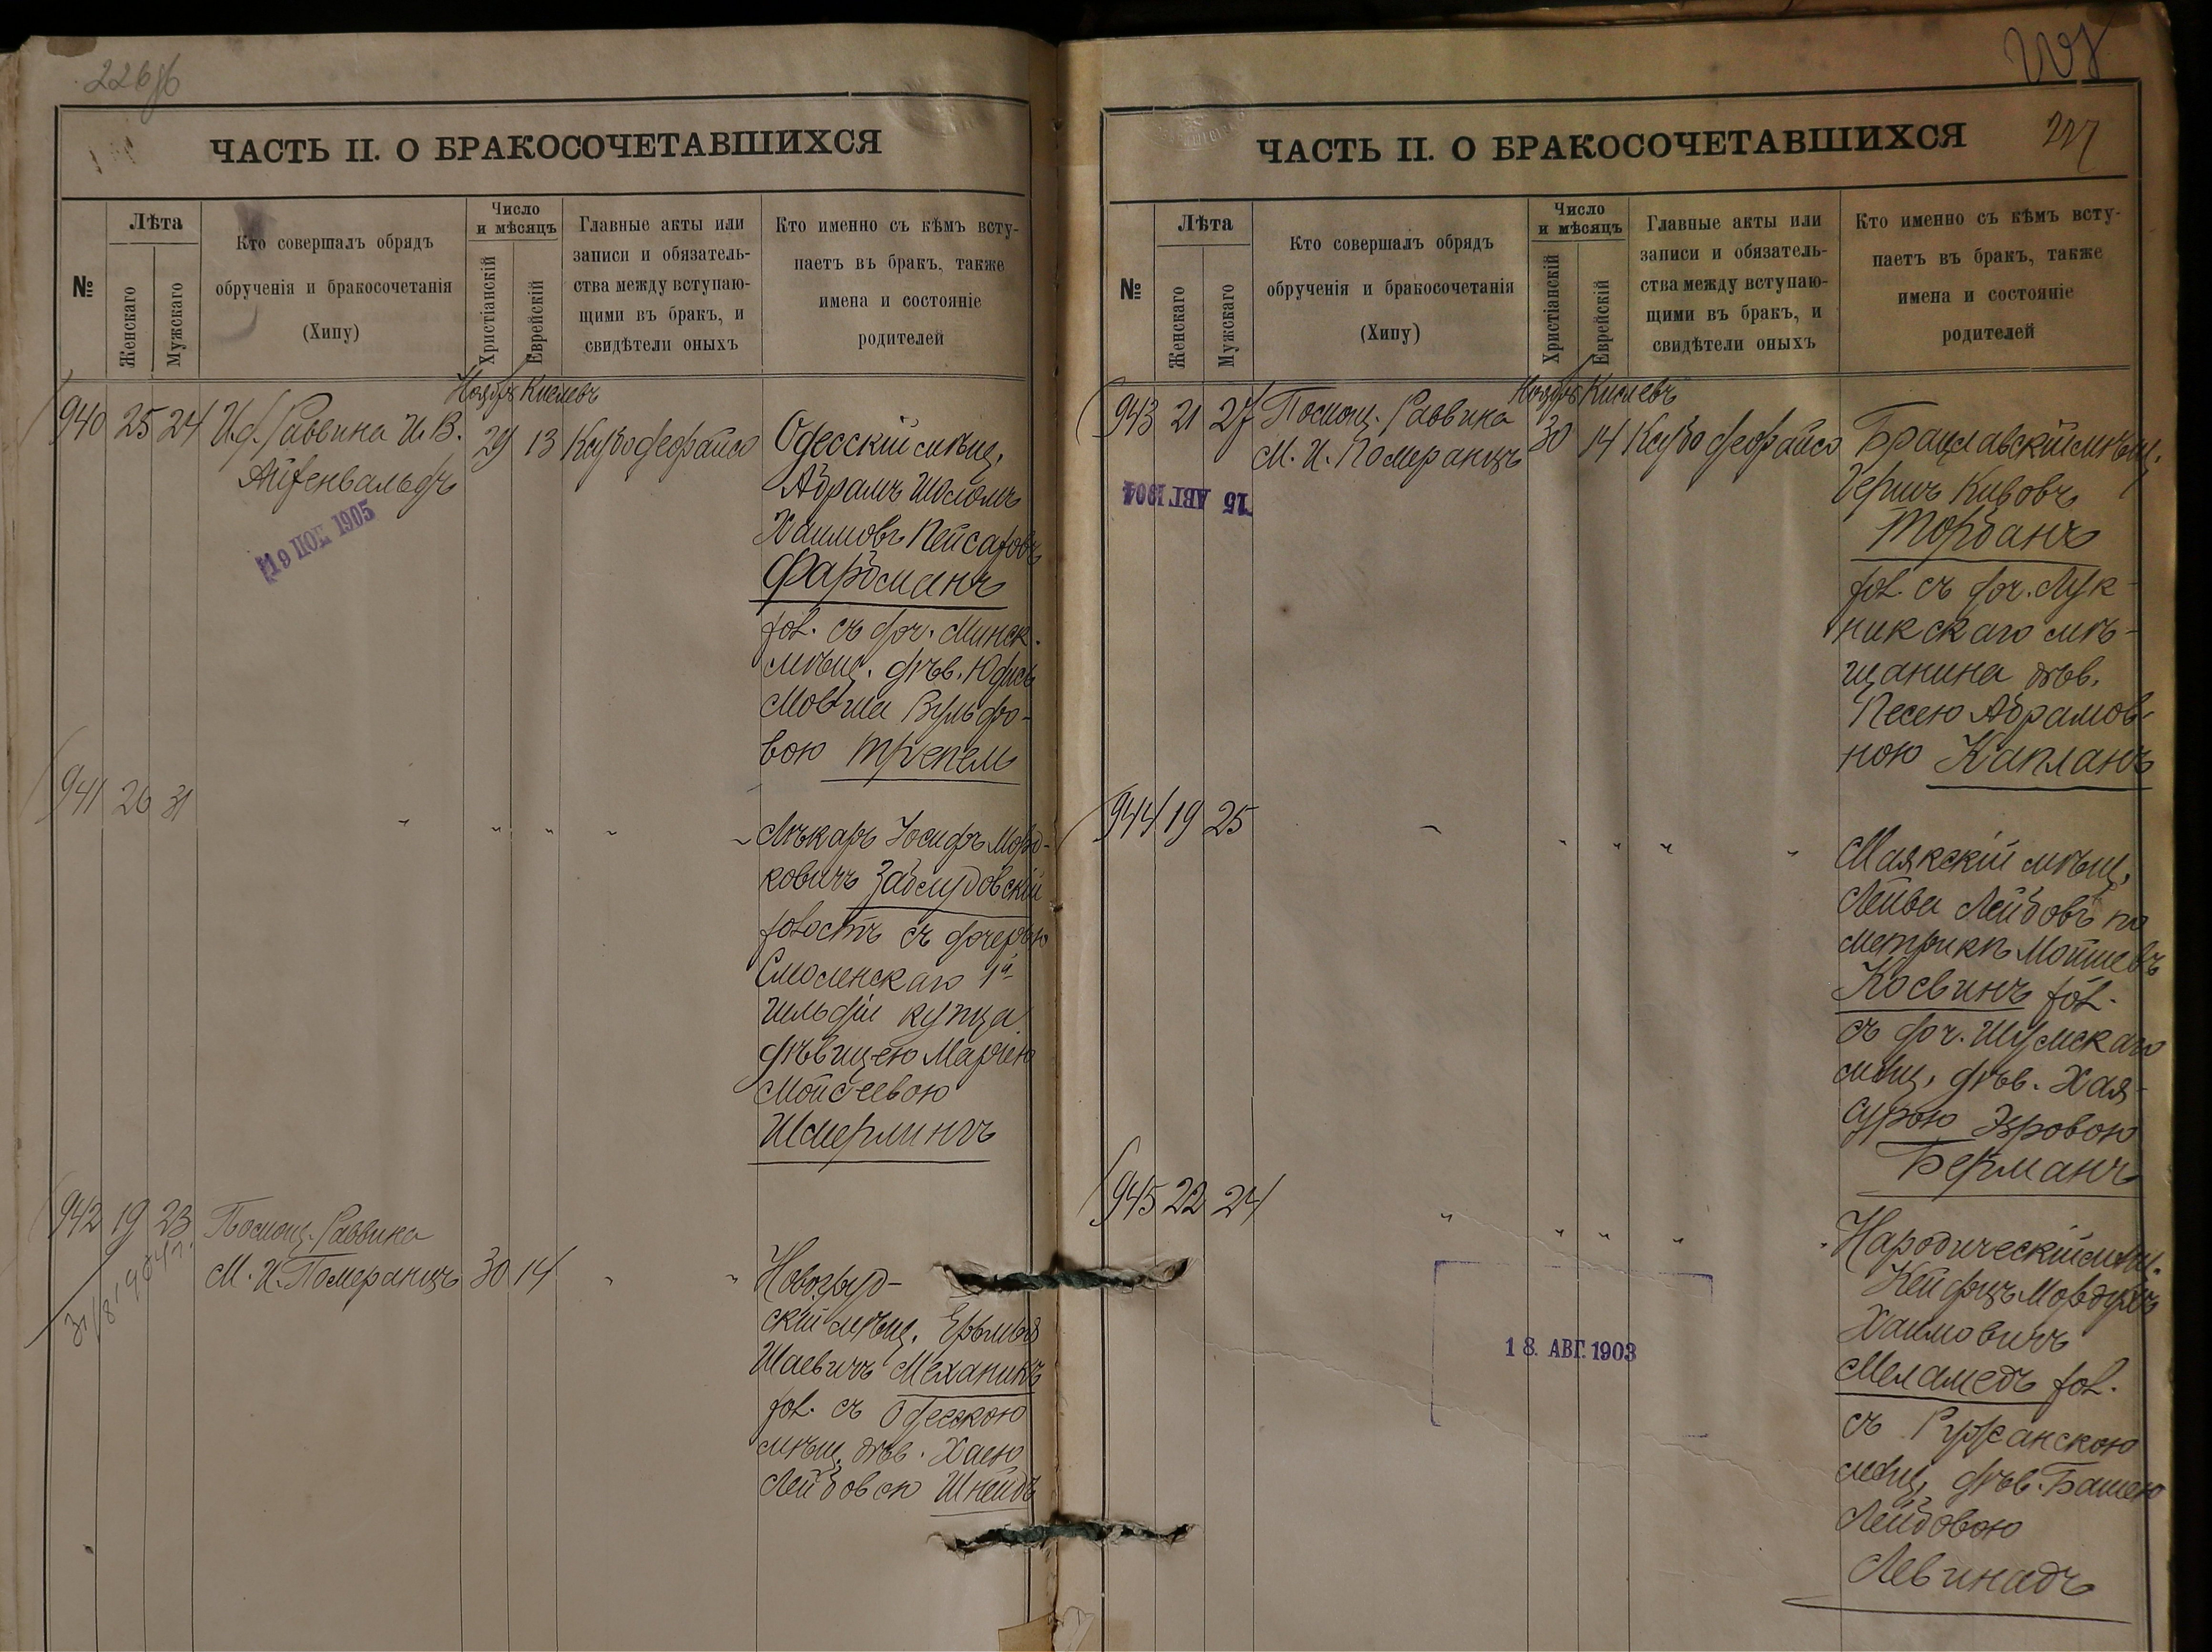 226об
ЧАСТЬ II. О БРАКОСОЧЕТАВШИХСЯ
№
Лѣта
Женскаго
Мужскаго
Кто совершалъ обрядъ
обрученія и бракосочетанія
(Хипу)
Число
и мѣсяцъ
Христіанскій
Еврейскій
Главные акты или
записи и обязатель-
ства между вступаю-
щими въ бракъ, и
свидѣтели оныхъ
Кто именно съ кѣмъ всту-
паетъ въ бракъ, также
имена и состояніе
родителей
Ноябрь Кислевъ
940 25 24 И.д. Раввина И. В. 29 13
Айзенвальдъ
Одесскій мѣщ.
Абрамъ Шоломъ
Хаимовъ Пейсаховъ
Фарбманъ
хол. съ доч. Минск.
мѣщ. дѣв. Юдись
Мовша Вульфо-
вою Трепель
941 26 31 " " " " "
Лѣкарь Іосифъ Морд-
ковичъ Заблудовскій
холостъ съ дочерью
Смоленскаго 1й
гильдіи купца
дѣвицею Маріею
Мойсеевою
Шмерлингъ
942 19 23 Помощ. Раввина
М. И. Померанцъ 30 14 " "
31/8 1904 г.
Новогруд-
скій мѣщ.
Шаевичъ Механикъ
хол. съ Одесскою
мѣщ. дѣв. Хаею
Лейбовою Шнейдъ
227
ЧАСТЬ II. О БРАКОСОЧЕТАВШИХСЯ
№
Лѣта
Женскаго
Мужскаго
Кто совершалъ обрядъ
обрученія и бракосочетанія
(Хипу)
Число
и мѣсяцъ
Христіанскій
Еврейскій
Главные акты или
записи и обязатель-
ства между вступаю-
щими въ бракъ, и
свидѣтели оныхъ
Кто именно съ кѣмъ всту-
паетъ въ бракъ, также
имена и состояніе
родителей
Ноябрь Кислевъ
943 21 27 Помощ. Раввина 30 14
М. И. Померанцъ
15 АВГ 1904
Брацлавскій мѣщ.
Гершъ Кивовъ
Торбанъ
хол. съ доч. Лук-
никскаго мѣ-
щанина дѣв.
Песею Абрамов-
ною Капланъ
944 19 25 " " " " "
Маякскій мѣщ.
Лейба Лейбовъ по
метрикѣ Мойшевъ
Косвинъ хол.
съ доч. Шумскаго
мѣщ. дѣв. Хая-
Сурою
Берманъ
945 22 24 " " " " "
18. АВГ. 1903
Народическій мѣщ.
Мордухъ
Хаимовичъ
Меламедъ хол.
съ Ружанскою
мѣщ. дѣв. Башею
Лейбовою
Левинадъ